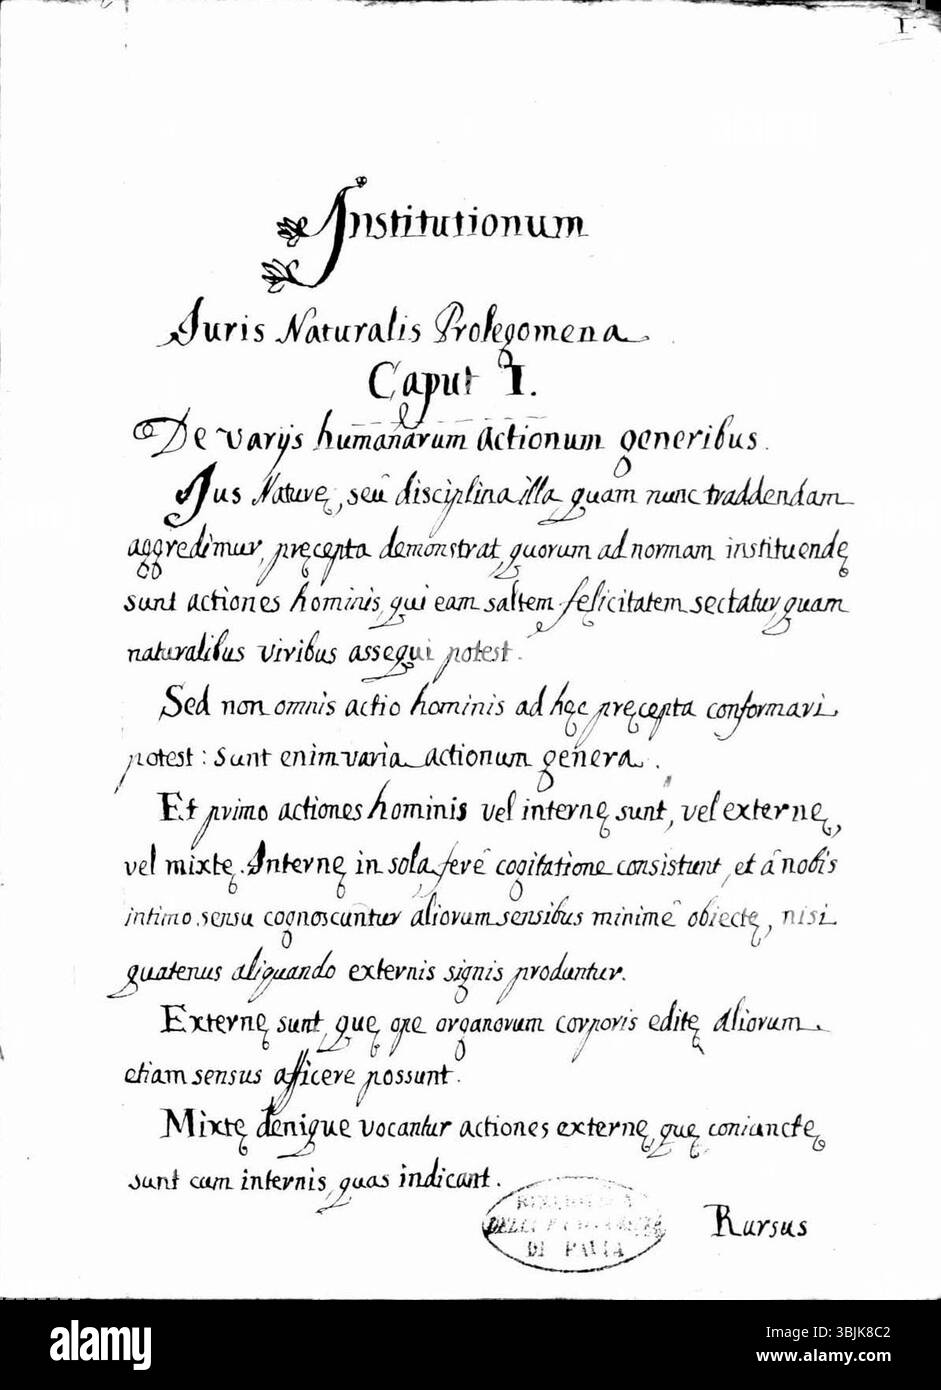 I.
Institutionum
Juris Naturalis Prolegomena
Caput I.
De varijs humanarum actionum generibus.
Jus Naturę, seû disciplina illa, quam nunc traddendam
aggredimur, pręcepta demonstrat, quorum ad normam instituendę
sunt actiones hominis, qui eam saltem felicitatem sectatur, quam
naturalibus viribus assequi potest.
Sed non omnis actio hominis ad hęc pręcepta conformari
potest: sunt enim varia actionum genera.
Et primo actiones hominis vel internę sunt, vel externę,
vel mixtę. Internę in sola ferê cogitatione consistunt, et â nobis
intimo sensu cognoscuntur aliorum sensibus minimê obiectę, nisi
quatenus aliquando externis signis produntur.
Externę sunt, quę ope organorum corporis editę aliorum
etiam sensus afficere possunt.
Mixtę denique vocantur actiones externę, quę coniunctę
sunt cum internis, quas indicant.
DI PAVIA
Rursus
alamy
Image ID: 3BJK8C2
www.alamy.com